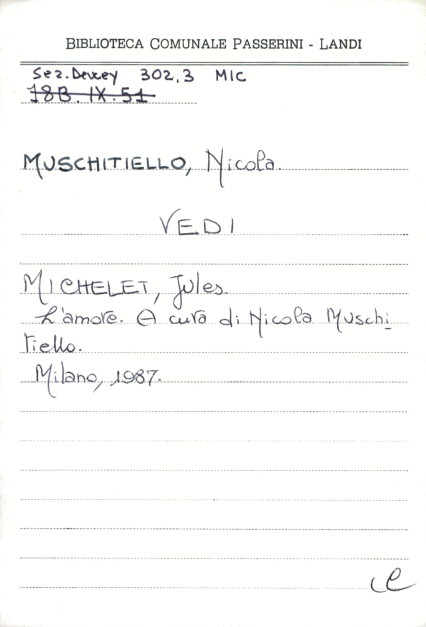 BIBLIOTECA COMUNALE PASSERINI - LANDI
Sez. Dewey 302.3 MIC
18B. IX. 51
MUSCHITIELLO, Nicola.
VEDI
MICHELET, Jules.
L'amore. A cura di Nicola Muschi
tiello.
Milano, 1987.